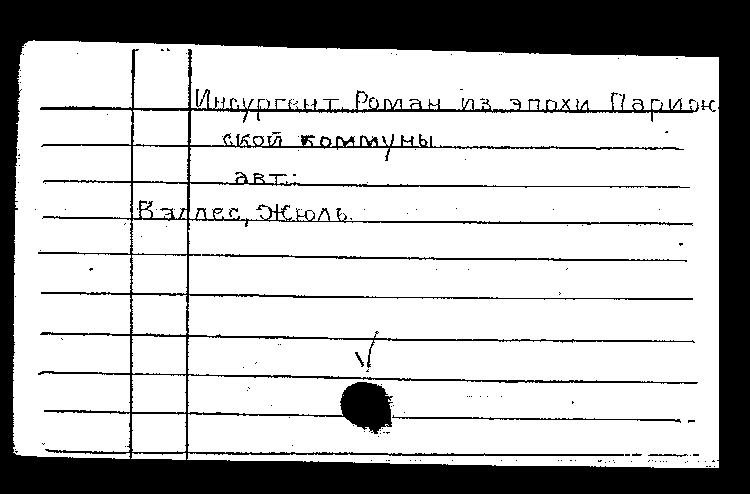 Инсургент Роман из эпохи Париж-
ской коммуны
авт.:
Вэллес, Жюль.